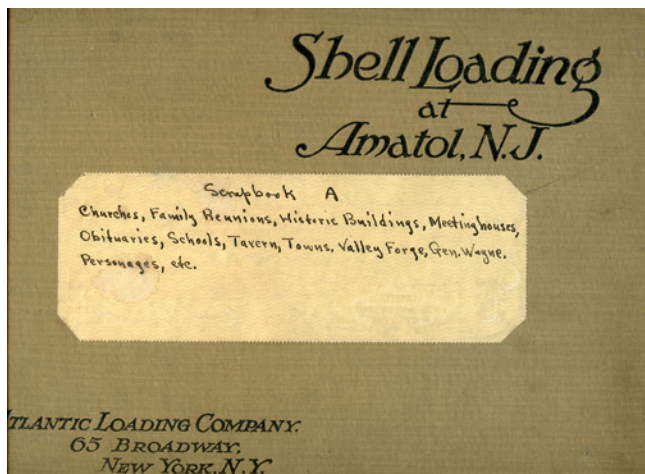 Shell Loading
at
Amatol, N.J.
Scrapbook A
Churches, Family Reunions, Historic Buildings, Meetinghouses,
Obituaries, Schools, Tavern, Towns. Valley Forge, Gen. Wayne.
Personages, etc.
ATLANTIC LOADING COMPANY.
65 BROADWAY.
NEW YORK, N.Y.